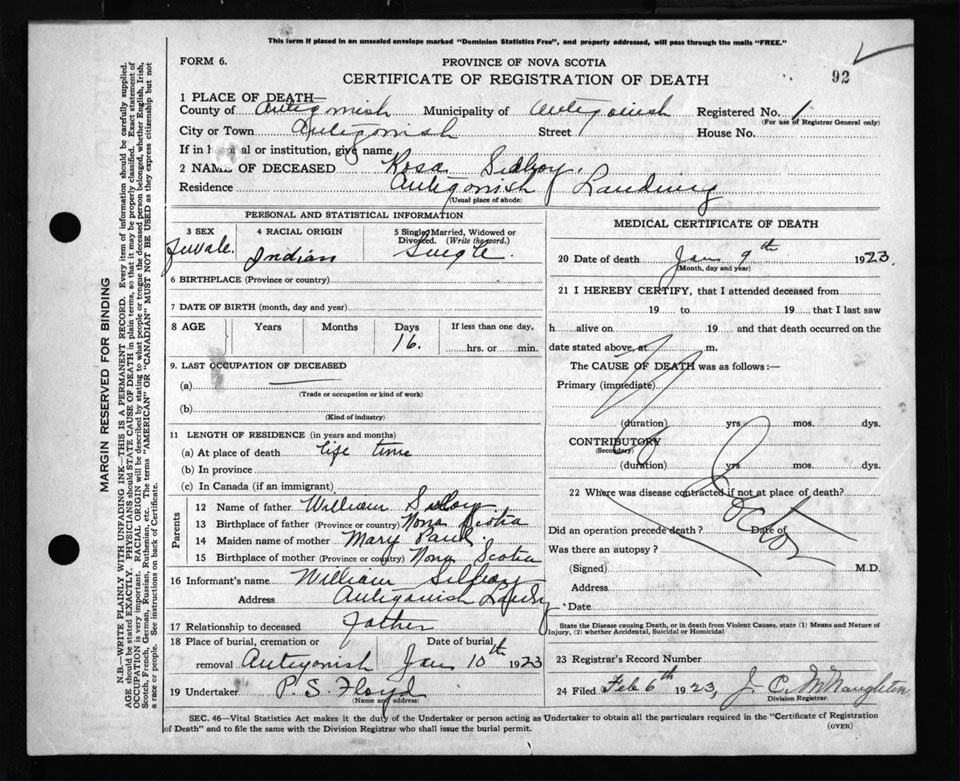 This form if placed in an unsealed envelope marked "Dominion Statistics Free", and properly addressed, will pass through the mails "FREE."
FORM 6.
PROVINCE OF NOVA SCOTIA
92
CERTIFICATE OF REGISTRATION OF DEATH
1 PLACE OF DEATH—
County of Antigonish Municipality of Antigonish Registered No. 1
(For use of Registrar General only)
City or Town Antigonish Street House No.
If in h al or institution, give name
2 NAME OF DECEASED Rosa
Residence Antigonish Landing
(Usual place of abode)
PERSONAL AND STATISTICAL INFORMATION
3 SEX 4 RACIAL ORIGIN 5 Single, Married, Widowed or Divorced. (Write the word.)
Female. Indian Single.
6 BIRTHPLACE (Province or country)
7 DATE OF BIRTH (month, day and year)
8 AGE Years Months Days If less than one day,
16. hrs. or min.
9. LAST OCCUPATION OF DECEASED
(a)
(Trade or occupation or kind of work)
(b)
(Kind of industry)
11 LENGTH OF RESIDENCE (in years and months)
(a) At place of death life time
(b) In province
(c) In Canada (if an immigrant)
Parents
12 Name of father William
13 Birthplace of father (Province or country) Nova Scotia
14 Maiden name of mother Mary Paul.
15 Birthplace of mother (Province or country) Nova Scotia
16 Informant's name William
Address Antigonish Landg
17 Relationship to deceased Father
18 Place of burial, cremation or removal Antigonish Date of burial Jan 10th 1923
19 Undertaker P. S. Floyd
(Name and address)
MEDICAL CERTIFICATE OF DEATH
20 Date of death Jan 9th 1923.
(Month, day and year)
21 I HEREBY CERTIFY, that I attended deceased from
19 to 19 that I last saw
h alive on 19 and that death occurred on the
date stated above, at m.
The CAUSE OF DEATH was as follows:—
Primary (immediate)
(duration) yrs. mos. dys.
CONTRIBUTORY
(Secondary)
(duration) yrs. mos. dys.
22 Where was disease contracted if not at place of death?
Did an operation precede death? Date of
No Doctor
Was there an autopsy?
(Signed) M.D.
Address
Date
State the Disease causing Death, or in death from Violent Causes, state (1) Means and Nature of
Injury, (2) whether Accidental, Suicidal or Homicidal
23 Registrar's Record Number
24 Filed Feb 6th 1923, J. C. McNaughton
Division Registrar.
SEC. 46—Vital Statistics Act makes it the duty of the Undertaker or person acting as Undertaker to obtain all the particulars required in the "Certificate of Registration
of Death" and to file the same with the Division Registrar who shall issue the burial permit.
(OVER)
MARGIN RESERVED FOR BINDING
N.B.—WRITE PLAINLY WITH UNFADING INK—THIS IS A PERMANENT RECORD. Every item of information should be carefully supplied.
AGE should be stated EXACTLY. PHYSICIANS should STATE CAUSE OF DEATH in plain terms, so that it may be properly classified. Exact statement of
OCCUPATION is very important. RACIAL ORIGIN will be described by stating to what people or tongue the deceased person belonged, whether English, Irish,
Scotch, French, German, Russian, Ruthenian, etc. The terms "AMERICAN" OR "CANADIAN" MUST NOT BE USED as they express citizenship but not
a race or people. See instructions on back of Certificate.